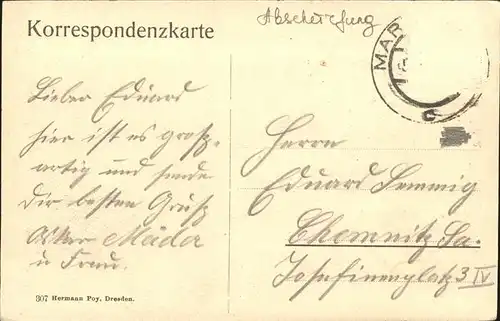 Korrespondenzkarte
Abschürfung
MAR
Lieber Eduard
hier ist es gross-
artig und sende
Dir besten Gruß
Mäder
u Frau.
Herrn
Eduard Lemmig
Chemnitz, Sa.
Josefinenplatz 3 IV
307 Hermann Poy, Dresden.